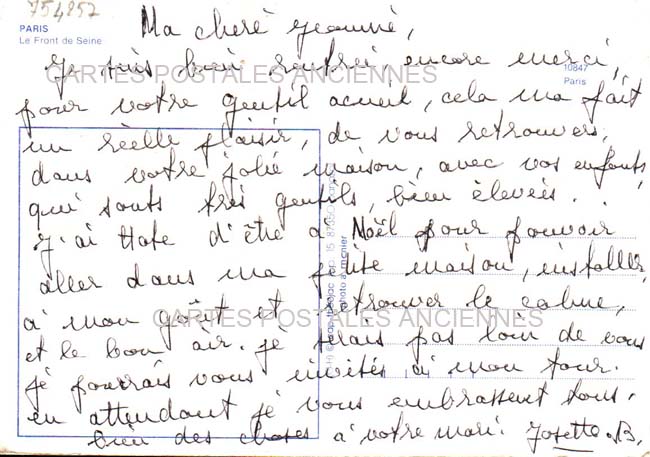 754857
PARIS
Le Front de Seine
10847
Paris
Ma cheré Jeanné,
Je suis bien rentréi encore merci,
pour votre gentil acueil, cela ma fait
un réelle plaisir, de vous retrouver,
dans votre jolie maison, avec vos enfants,
qui sonts trés gentils, bien éleveés.
J'ai hate d'être a Noël pour pouvoir
aller dans ma petite maison, installer,
a mon goût et retrouver le calme,
et le bon air. je serais pas loin de vous
je pourrais vous invités a mon tour.
en attendant je vous embrassent tous.
bien des choses a votre mari. Josette.B.
CARTES POSTALES ANCIENNES
CARTES POSTALES ANCIENNES